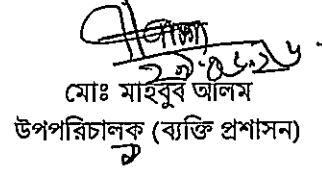 ২৯.০৬.২৬
মোঃ মাহবুব আলম
উপপরিচালক (ব্যক্তি প্রশাসন)